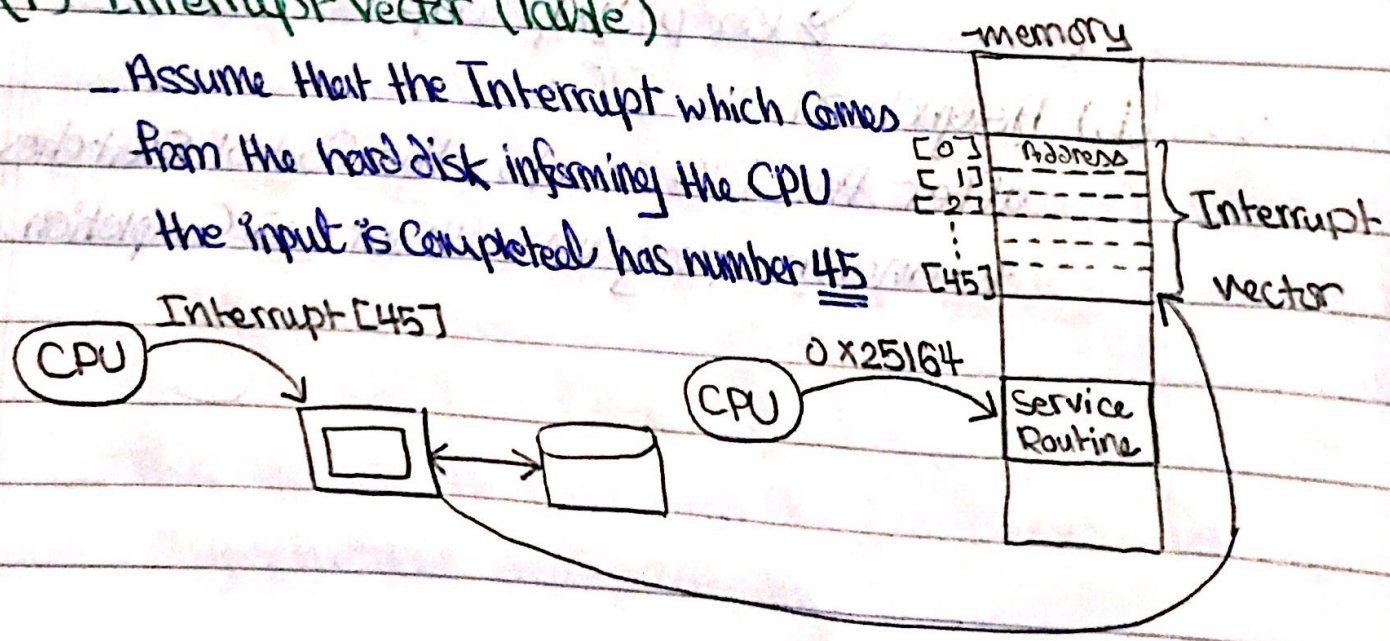 (1) Interrupt Vector (Table)
- Assume that the Interrupt which Comes
from the hard disk informing the CPU
the input is Completed has number 45
memory
[0] Address
[1]
[2]
[45]
Interrupt
vector
Interrupt [45]
CPU
0x25164
CPU
Service
Routine